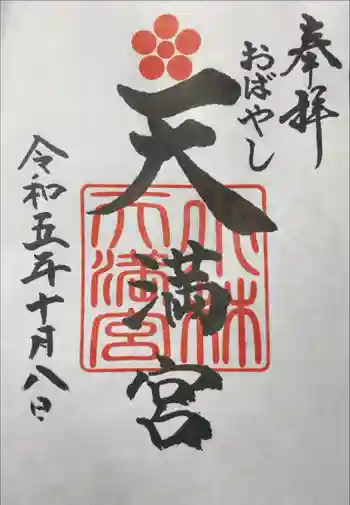 奉拝
おばやし
天満宮
小林天満宮
令和五年十月八日